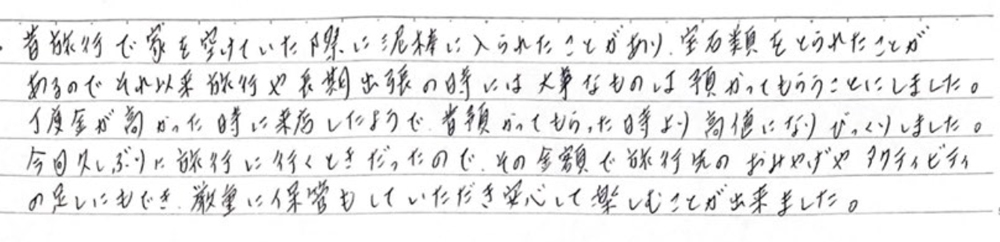 昔旅行で家を空けていた際に泥棒に入られたことがあり、宝石類をとられたことが
あるのでそれ以来旅行や長期出張の時には大事なものは預かってもらうことにしました。
丁度金が高かった時に来店したようで、昔預かってもらった時より高値になりびっくりしました。
今回久しぶりに旅行に行くときだったので、その金額で旅行先のおみやげやアクティビティ
の足しにもでき、厳重に保管もしていただき安心して楽しむことが出来ました。